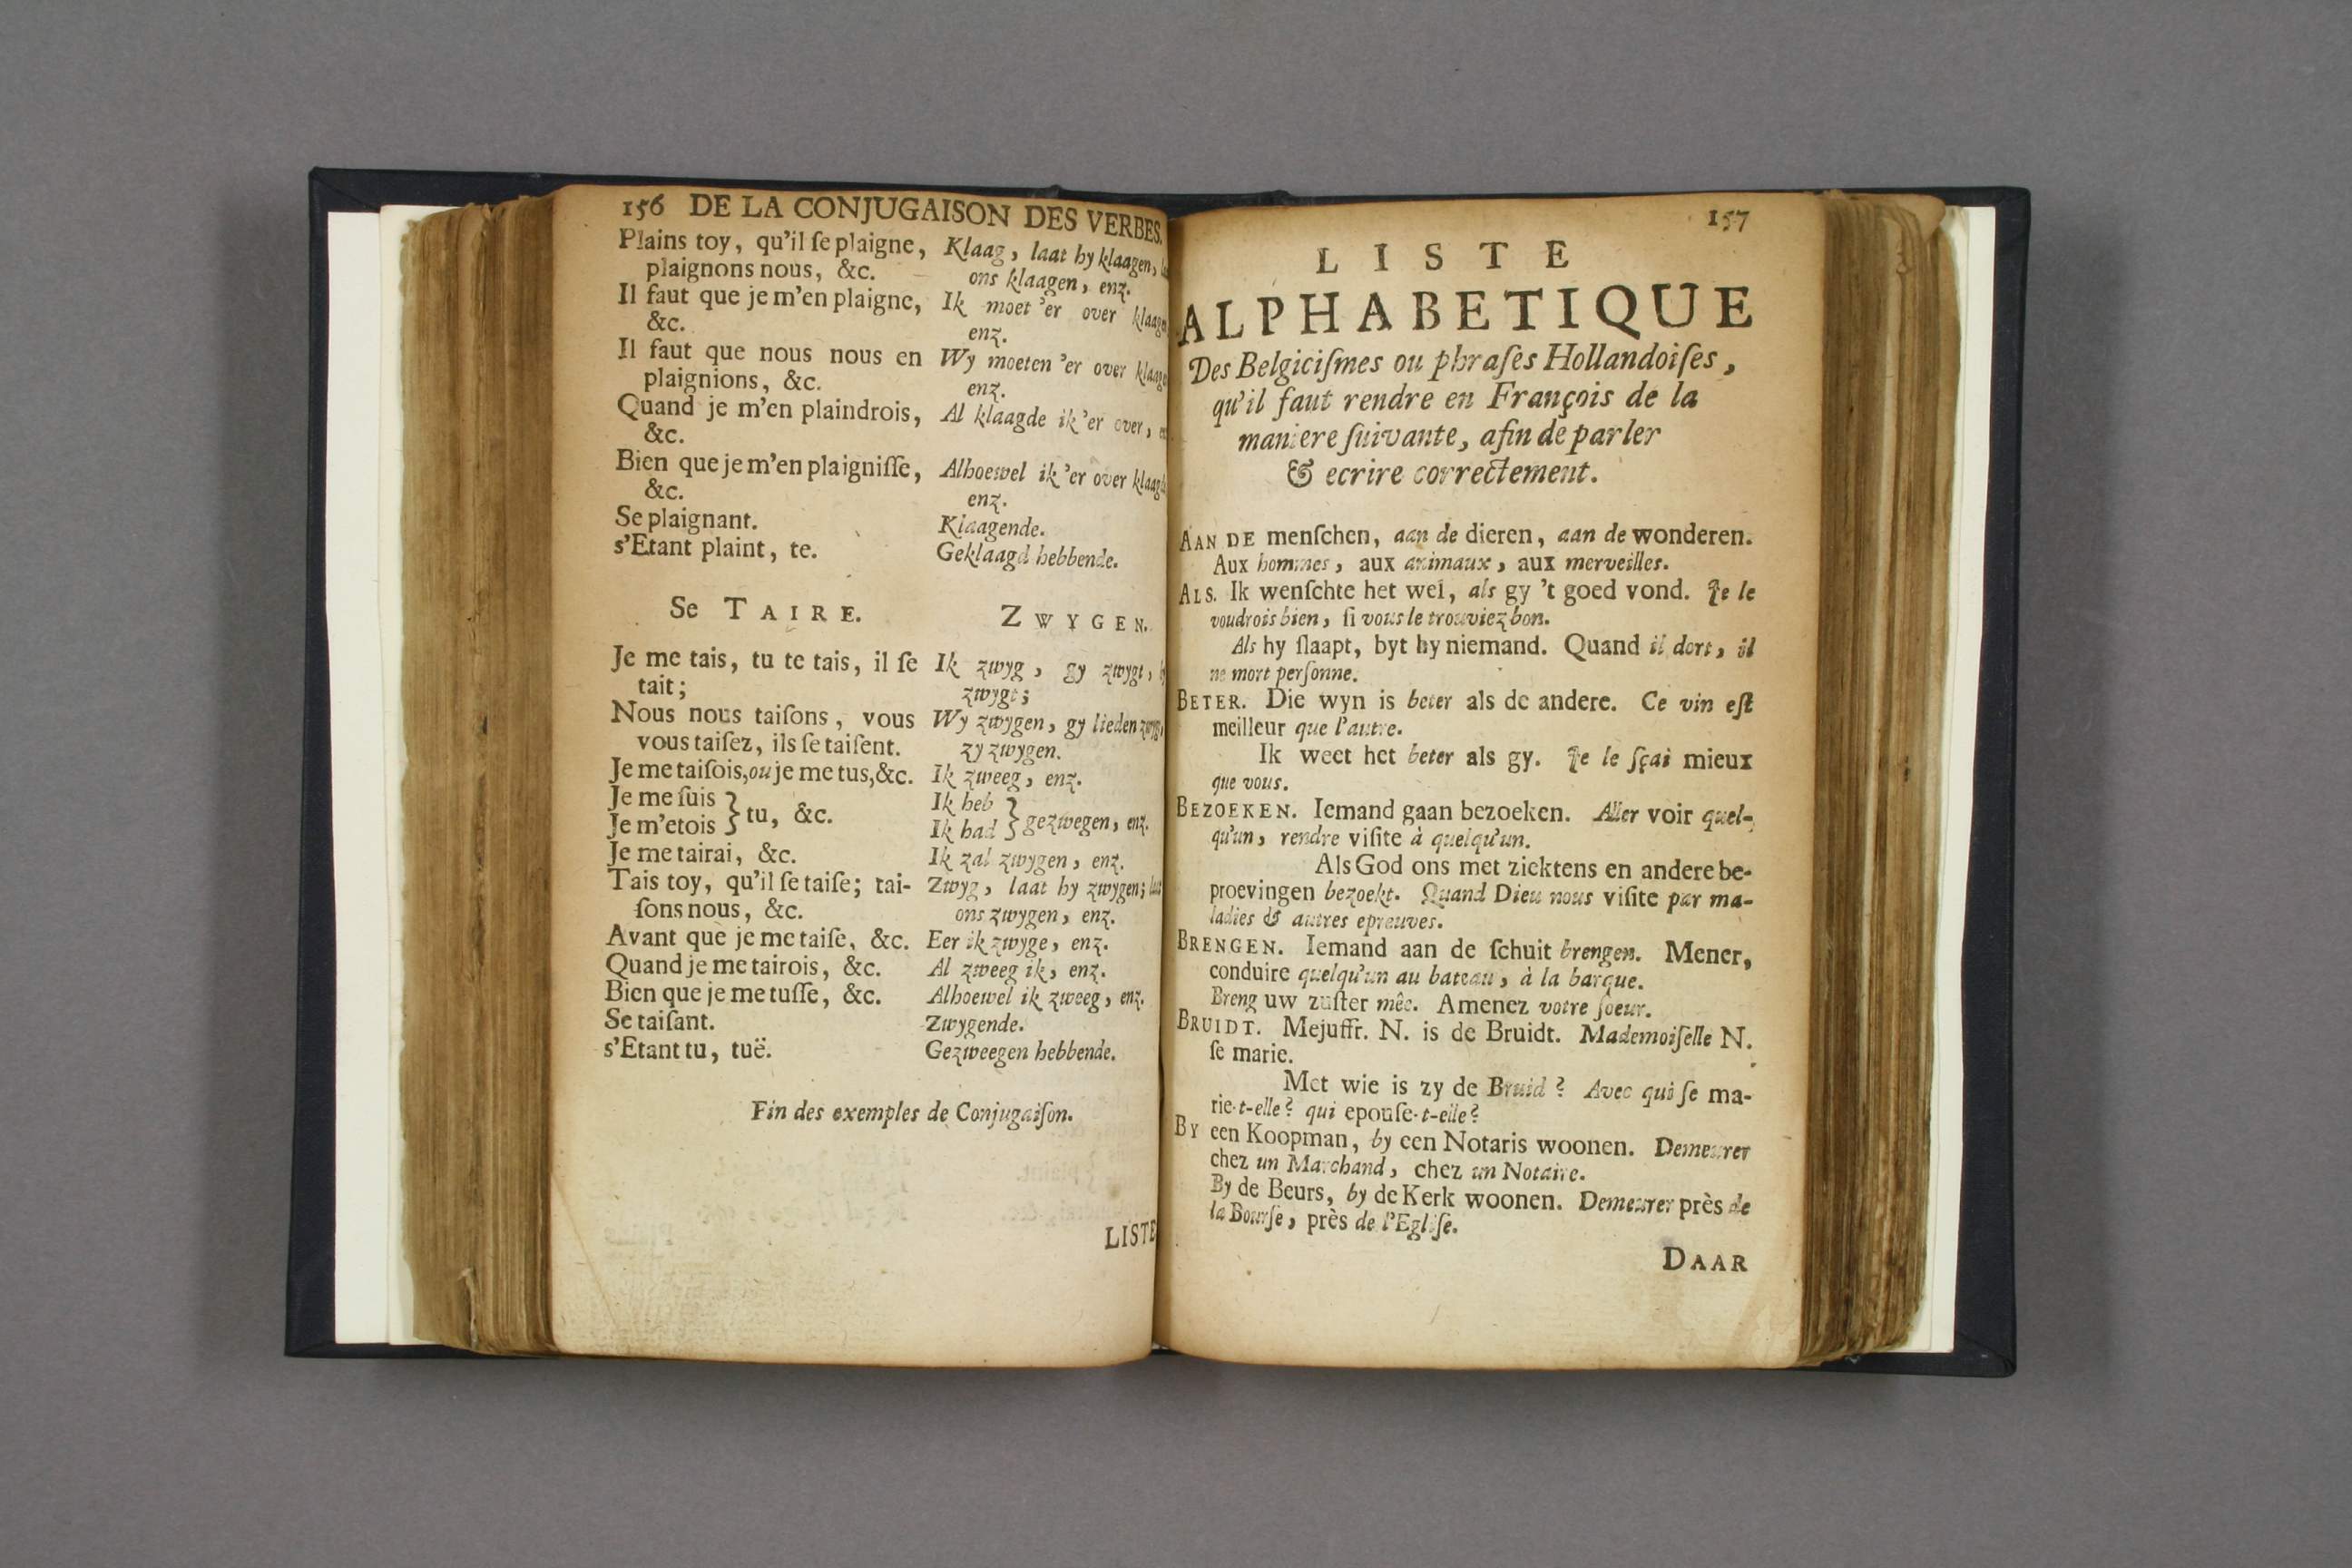 156 DE LA CONJUGAISON DES VERBES.
Plains toy, qu'il ſe plaigne,
plaignons nous, &c.
Il faut que je m'en plaigne,
&c.
Il faut que nous nous en
plaignions, &c.
Quand je m'en plaindrois,
&c.
Bien que je m'en plaigniſſe,
&c.
Se plaignant.
s'Etant plaint, te.
Klaag, laat hy klaagen,
ons klaagen, enz.
Ik moet 'er over
enz.
Wy moeten 'er over
enz.
Al klaagde ik 'er over,
Alhoewel ik 'er over
enz.
Klaagende.
Geklaagd hebbende.
Se TAIRE.
ZWYGEN.
Je me tais, tu te tais, il ſe
tait;
Nous nous taiſons, vous
vous taiſez, ils ſe taiſent.
Je me taiſois, ou je me tus, &c.
Je me ſuis
Je m'etois } tu, &c.
Je me tairai, &c.
Tais toy, qu'il ſe taiſe; tai-
ſons nous, &c.
Avant que je me taiſe, &c.
Quand je me tairois, &c.
Bien que je me tuſſe, &c.
Se taiſant.
s'Etant tu, tuë.
Ik zwyg, gy zwygt,
zwygt;
Wy zwygen, gy lieden
zy zwygen.
Ik zweeg, enz.
Ik heb
Ik had } gezwegen, enz.
Ik zal zwygen, enz.
Zwyg, laat hy zwygen;
ons zwygen, enz.
Eer ik zwyge, enz.
Al zweeg ik, enz.
Alhoewel ik zweeg, enz.
Zwygende.
Gezweegen hebbende.
Fin des exemples de Conjugaiſon.
LISTE
157
LISTE
ALPHABETIQUE
Des Belgiciſmes ou phraſes Hollandoiſes,
qu'il faut rendre en François de la
maniere ſuivante, afin de parler
& ecrire correctement.
AAN DE menſchen, aan de dieren, aan de wonderen.
Aux hommes, aux animaux, aux merveilles.
ALS. Ik wenſchte het wel, als gy 't goed vond. Je le
voudrois bien, ſi vous le trouviez bon.
Als hy ſlaapt, byt hy niemand. Quand il dort, il
ne mort perſonne.
BETER. Die wyn is beter als de andere. Ce vin eſt
meilleur que l'autre.
Ik weet het beter als gy. Je le ſçai mieux
que vous.
BEZOEKEN. Iemand gaan bezoeken. Aller voir quel-
qu'un, rendre viſite à quelqu'un.
Als God ons met ziektens en andere be-
proevingen bezoekt. Quand Dieu nous viſite par ma-
ladies & autres epreuves.
BRENGEN. Iemand aan de ſchuit brengen. Mener,
conduire quelqu'un au bateau, à la barque.
Breng uw zuſter mêe. Amenez votre ſoeur.
BRUIDT. Mejuffr. N. is de Bruidt. Mademoiſelle N.
ſe marie.
Met wie is zy de Bruid? Avec qui ſe ma-
rie-t-elle? qui epouſe-t-elle?
BY een Koopman, by een Notaris woonen. Demeurer
chez un Marchand, chez un Notaire.
By de Beurs, by de Kerk woonen. Demeurer près de
la Bourſe, près de l'Egliſe.
DAAR